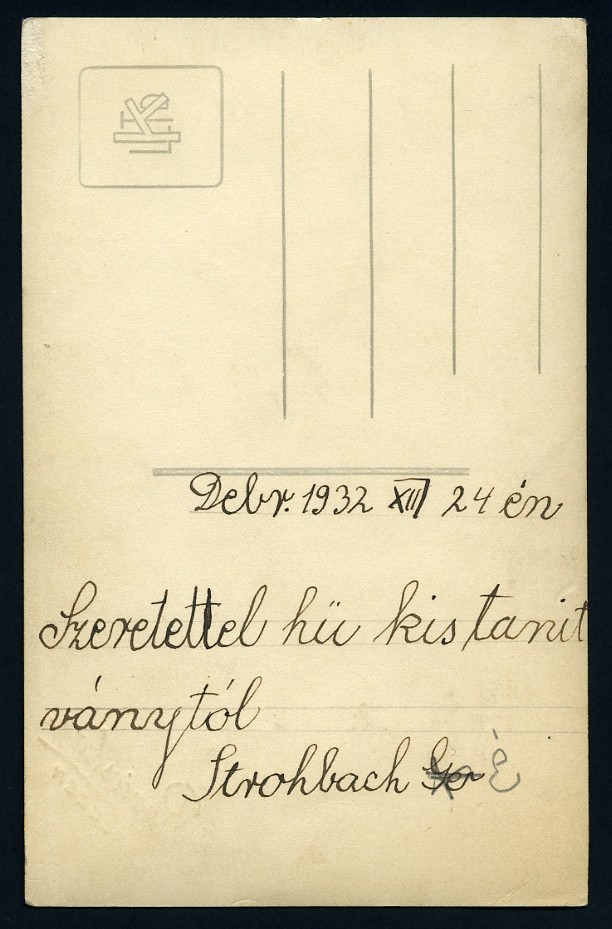 Debr. 1932 XII 24 én
Szeretettel hü kis tanit
ványtól
Strohbach É